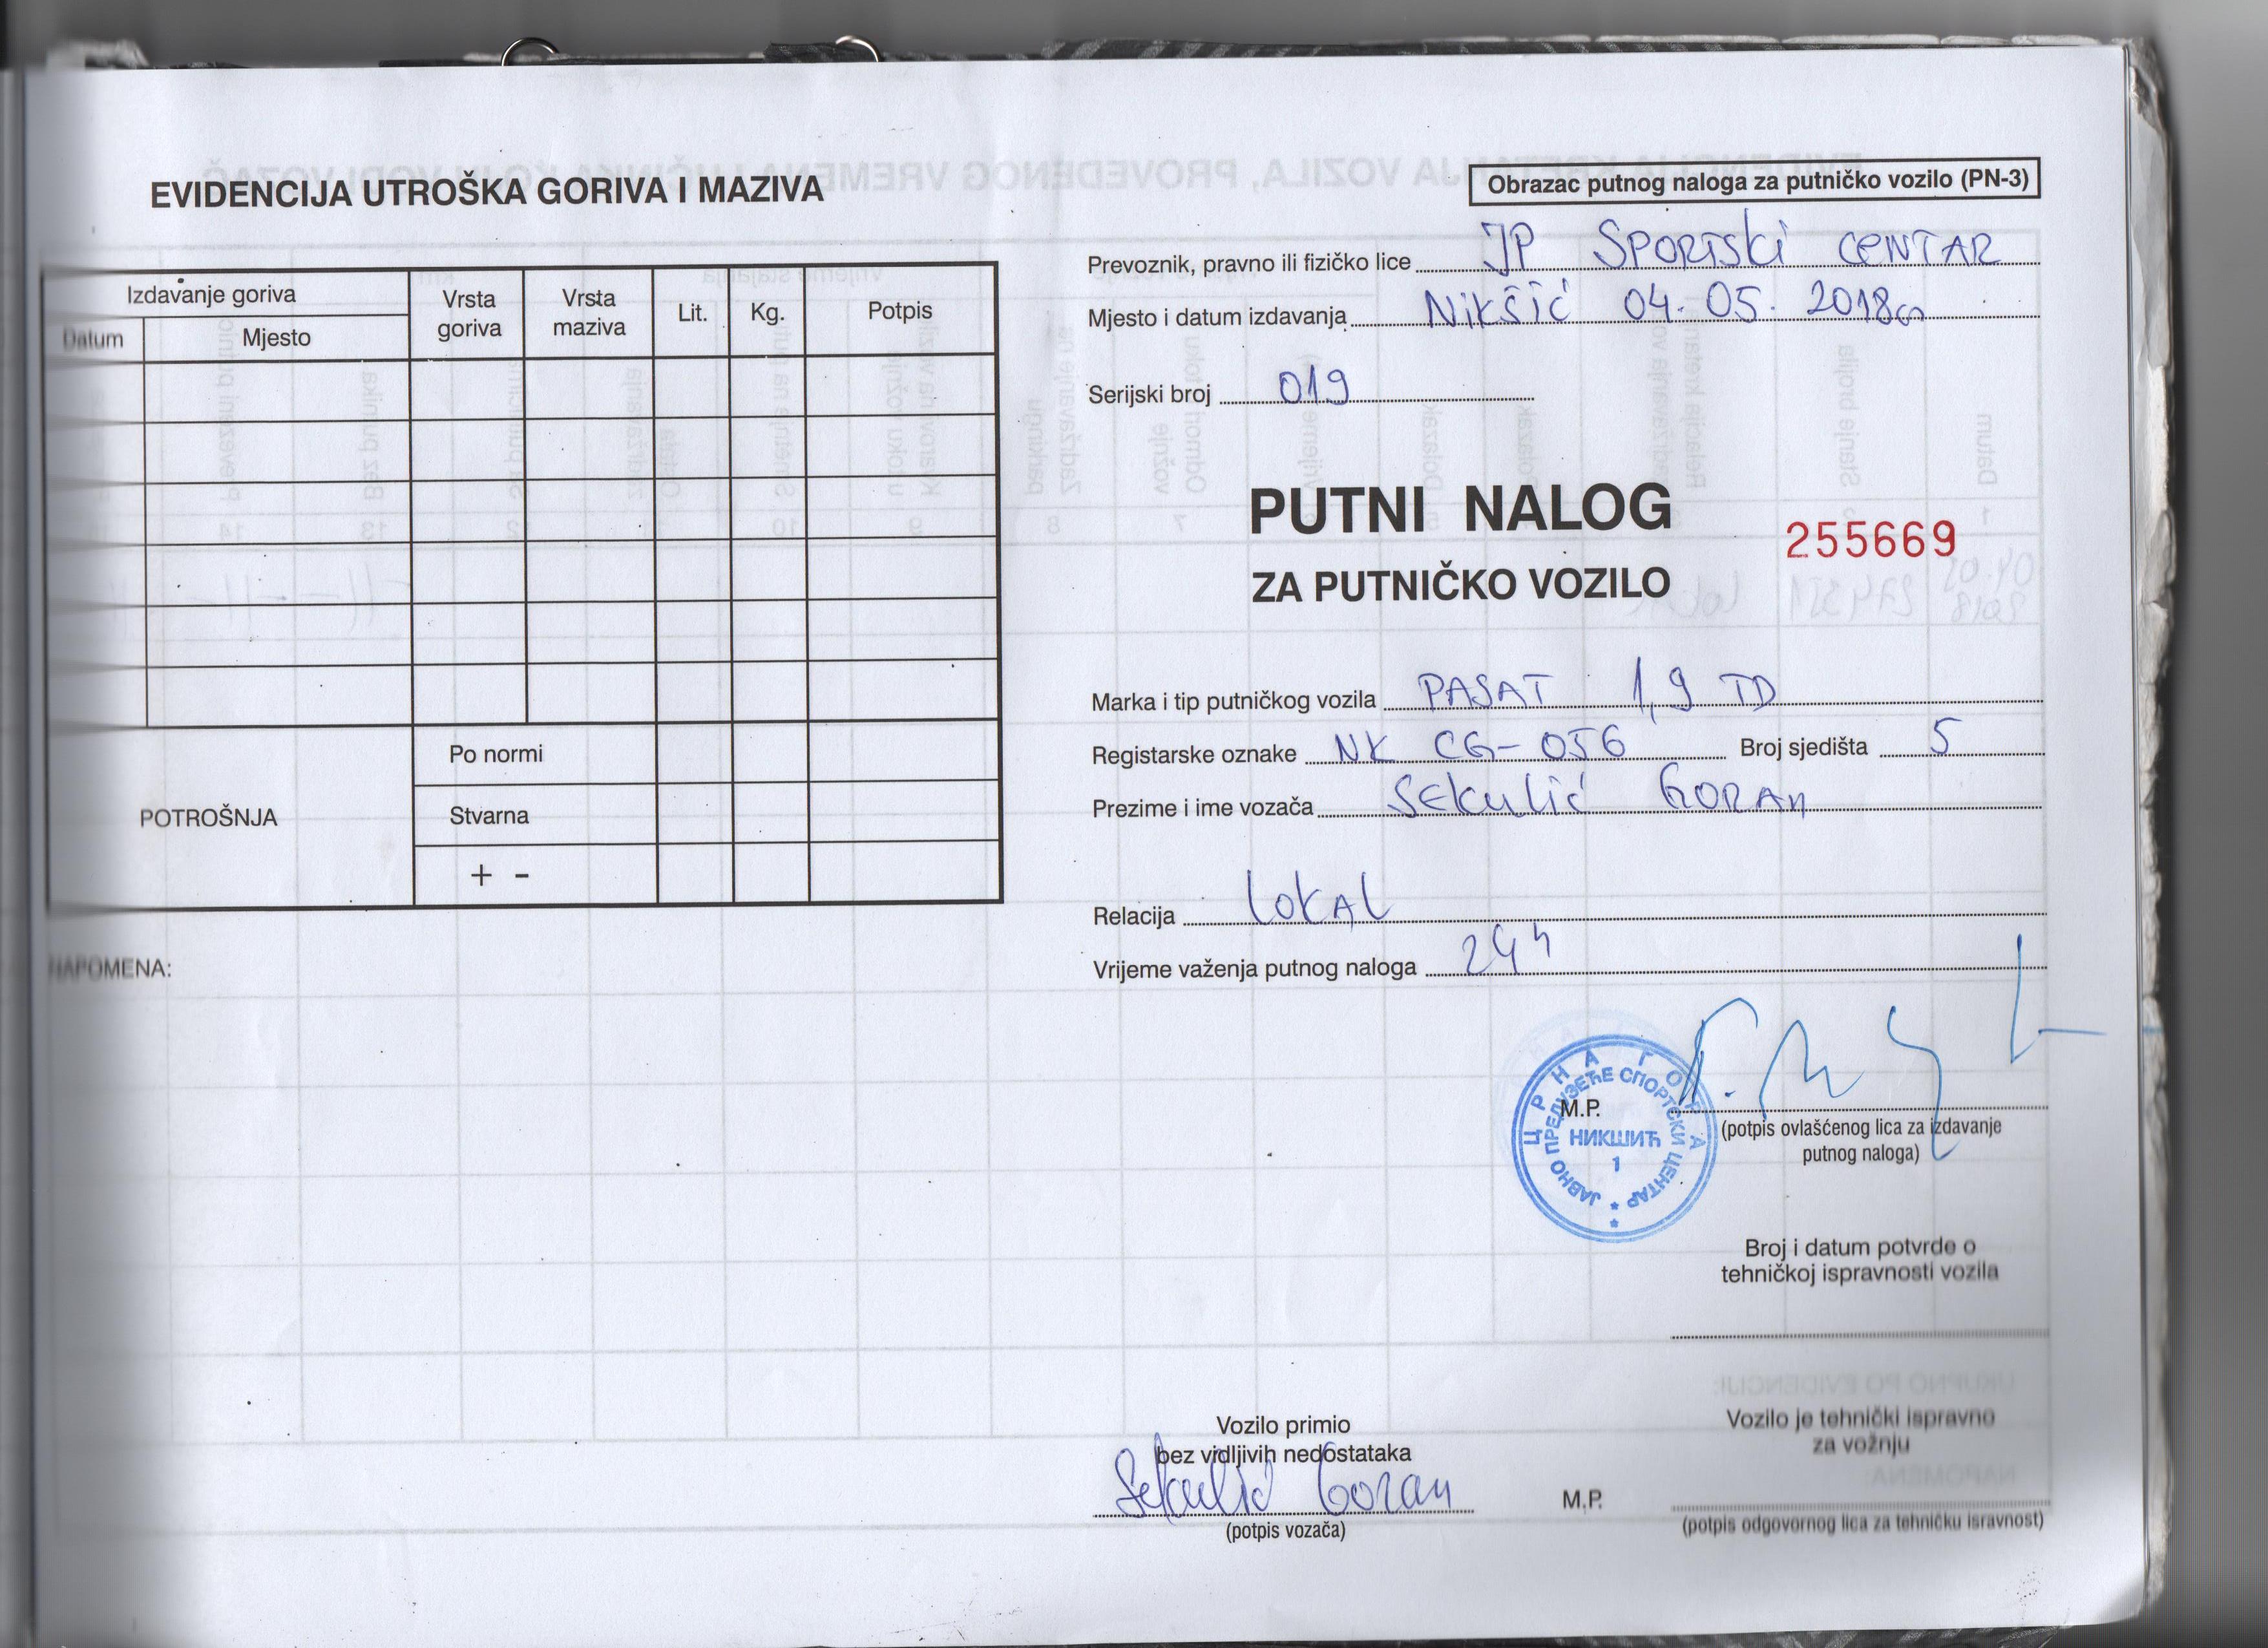 EVIDENCIJA UTROŠKA GORIVA I MAZIVA
Izdavanje goriva
Datum
Mjesto
Vrsta goriva
Vrsta maziva
Lit.
Kg.
Potpis
POTROŠNJA
Po normi
Stvarna
+ -
NAPOMENA:
Obrazac putnog naloga za putničko vozilo (PN-3)
Prevoznik, pravno ili fizičko lice JP SPORTSKI CENTAR
Mjesto i datum izdavanja NIKŠIĆ 04.05. 2018
Serijski broj 019
PUTNI NALOG
255669
ZA PUTNIČKO VOZILO
Marka i tip putničkog vozila PASAT 1,9 TD
Registarske oznake NK CG-056 Broj sjedišta 5
Prezime i ime vozača SEKULIĆ GORAN
Relacija LOKAL
Vrijeme važenja putnog naloga 24h
ЦРНА ГОРА
ЈАВНО ПРЕДУЗЕЋЕ СПОРТСКИ ЦЕНТАР
НИКШИЋ
1
M.P.
(potpis ovlašćenog lica za izdavanje
putnog naloga)
Broj i datum potvrde o
tehničkoj ispravnosti vozila
Vozilo primio
bez vidljivih nedostataka
Sekulić Goran
(potpis vozača)
M.P.
Vozilo je tehnički ispravno
za vožnju
(potpis odgovornog lica za tehničku isravnost)